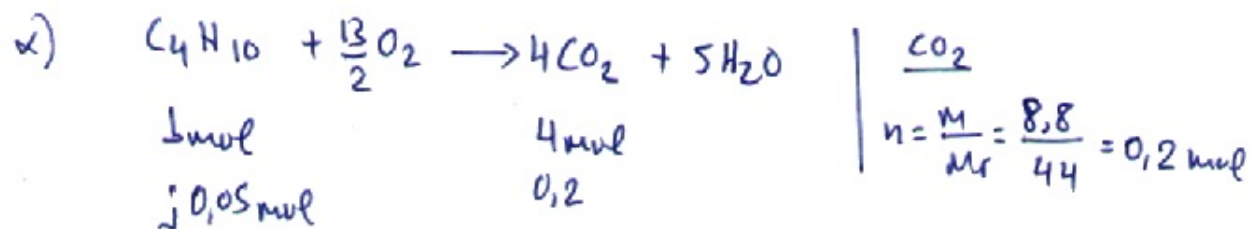 α) C₄H₁₀ + 13/2 O₂ → 4CO₂ + 5H₂O
1mol 4mol
; 0,05mol 0,2
CO₂
n = m/Mr = 8,8/44 = 0,2 mol